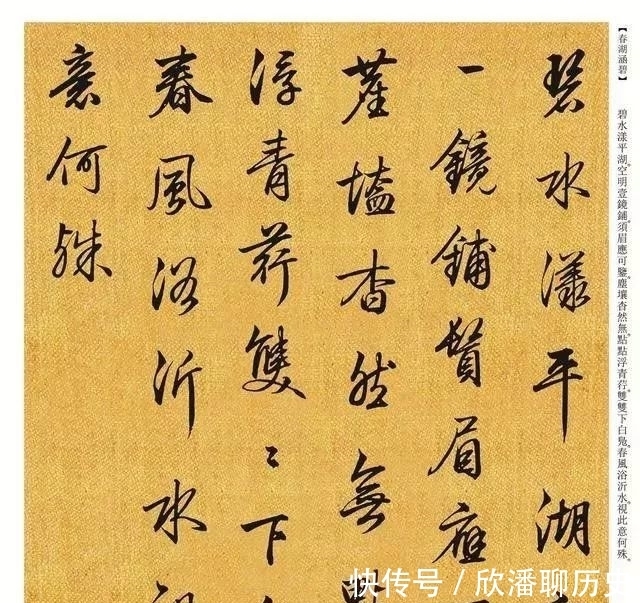 【春湖涵碧】 碧水漾平湖空明壹鏡鋪須眉應可鑒塵壒杳然無點點浮青荇雙雙下白凫春風浴沂水視此意何殊
碧水漾平湖
一鏡鋪鬚眉應
塵壒杳然無點
浮青荇雙〻下
春風浴沂水視
意何殊
快传号 / 欣潘聊历史